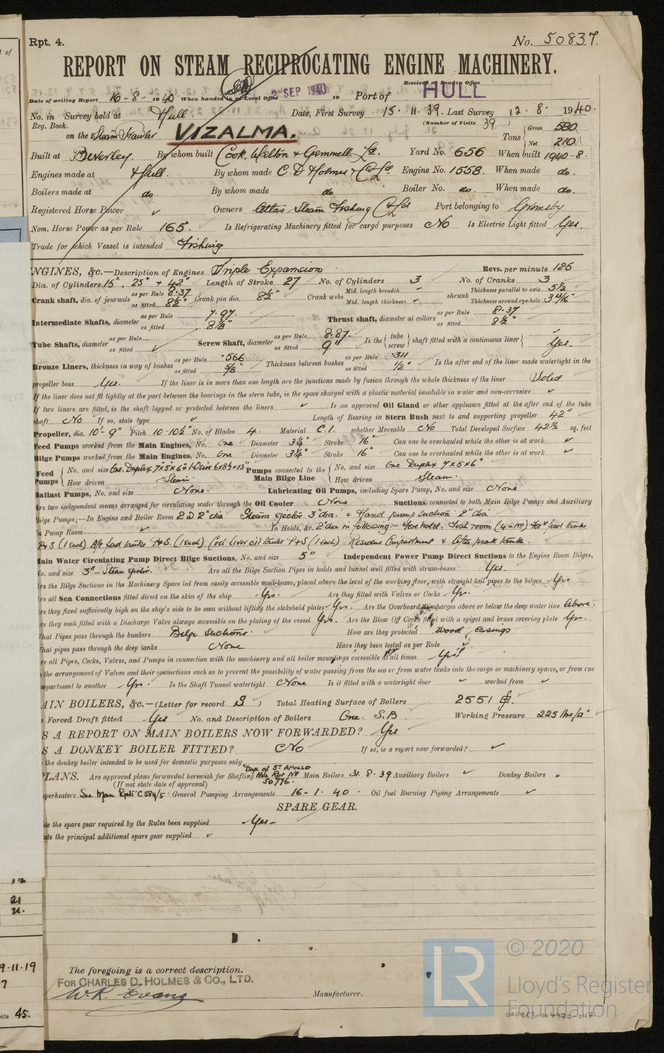 Rpt. 4.
No. 50837.
REPORT ON STEAM RECIPROCATING ENGINE MACHINERY.
Received at London Office
2 SEP 1940
Date of writing Report 10-8- 1940 When handed in at Local Office Port of HULL
No. in Survey held at Hull Date, First Survey 15.11.39 Last Survey 12.8.1940.
Reg. Book. (Number of Visits 39
on the Steam Trawler VIZALMA. Tons Gross 580 Net 210
Built at Beverley By whom built Cook, Welton & Gemmell Ltd. Yard No. 656 When built 1940-8.
Engines made at Hull By whom made C.D. Holmes & Co Ld Engine No. 1558 When made do.
Boilers made at do. By whom made do. Boiler No. do. When made do.
Registered Horse Power Owners Atlas Steam Fishing Co Ltd Port belonging to Grimsby
Nom. Horse Power as per Rule 165. Is Refrigerating Machinery fitted for cargo purposes No Is Electric Light fitted Yes.
Trade for which Vessel is intended Fishing
ENGINES, &c.—Description of Engines Triple Expansion. Revs. per minute 126
Dia. of Cylinders 15", 25" + 42" Length of Stroke 27 No. of Cylinders 3 No. of Cranks 3
Crank shaft, dia. of journals as per Rule 8.37 as fitted 8½" Crank pin dia. 8½" Crank webs Mid. length breadth Mid. length thickness shrunk Thickness parallel to axis 5½" Thickness around eye-hole 3 11/16"
Intermediate Shafts, diameter as per Rule 7.97 as fitted 8⅛" Thrust shaft, diameter at collars as per Rule 8.37 as fitted 8½"
Tube Shafts, diameter as per Rule as fitted Screw Shaft, diameter as per Rule 8.87 as fitted 9" Is the tube screw shaft fitted with a continuous liner Yes.
Bronze Liners, thickness in way of bushes as per Rule .566 as fitted Thickness between bushes as per Rule as fitted ½" Is the after end of the liner made watertight in the
propeller boss Yes. If the liner is in more than one length are the junctions made by fusion through the whole thickness of the liner Solid
If the liner does not fit tightly at the part between the bearings in the stern tube, is the space charged with a plastic material insoluble in water and non-corrosive
If two liners are fitted, is the shaft lapped or protected between the liners Is an approved Oil Gland or other appliance fitted at the after end of the tube
shaft No If so, state type Length of Bearing in Stern Bush next to and supporting propeller 42"
Propeller, dia. 10'-9" Pitch 10'-10½" No. of Blades 4. Material C.I. whether Moveable No Total Developed Surface 42½ sq. feet
Feed Pumps worked from the Main Engines, No. One Diameter 3¼" Stroke 16" Can one be overhauled while the other is at work
Bilge Pumps worked from the Main Engines, No. One Diameter 3¼" Stroke 16" Can one be overhauled while the other is at work
Feed Pumps No. and size How driven Steam Pumps connected to the Main Bilge Line No. and size One Duplex 7x5x6" How driven Steam.
Ballast Pumps, No. and size None. Lubricating Oil Pumps, including Spare Pump, No. and size None
Are two independent means arranged for circulating water through the Oil Cooler None Suctions, connected to both Main Bilge Pumps and Auxiliary
Bilge Pumps;—In Engine and Boiler Room 2 @ 2" dia. Steam ejector 3" dia. + Hand pump suction 2" dia.
In Pump Room In Holds, &c. 2" dia in following - Fore hold.
Main Water Circulating Pump Direct Bilge Suctions, No. and size 5" Independent Power Pump Direct Suctions to the Engine Room Bilges,
No. and size 3" Steam ejector. Are all the Bilge Suction Pipes in holds and tunnel well fitted with strum-boxes Yes.
Are the Bilge Suctions in the Machinery Space led from easily accessible mud-boxes, placed above the level of the working floor, with straight tail pipes to the bilges Yes
Are all Sea Connections fitted direct on the skin of the ship Yes. Are they fitted with Valves or Cocks Yes.
Are they fixed sufficiently high on the ship's side to be seen without lifting the stokehold plates Yes. Are the Overboard Discharges above or below the deep water line Above.
Are they each fitted with a Discharge Valve always accessible on the plating of the vessel Yes. Are the Blow Off Cocks fitted with a spigot and brass covering plate Yes.
What Pipes pass through the bunkers Bilge Suctions. How are they protected Wood casings
What pipes pass through the deep tanks None Have they been tested as per Rule
Are all Pipes, Cocks, Valves, and Pumps in connection with the machinery and all boiler mountings accessible at all times Yes.
Is the arrangement of Valves and their connections such as to prevent the possibility of water passing from the sea or from water tanks into the cargo or machinery spaces, or from one
compartment to another Yes. Is the Shaft Tunnel watertight None Is it fitted with a watertight door worked from
MAIN BOILERS, &c.—(Letter for record S) Total Heating Surface of Boilers 2551
Is Forced Draft fitted Yes No. and Description of Boilers One. S.B. Working Pressure 225 lbs/□"
IS A REPORT ON MAIN BOILERS NOW FORWARDED? Yes
IS A DONKEY BOILER FITTED? No If so, is a report now forwarded?
Is the donkey boiler intended to be used for domestic purposes only
PLANS. Are approved plans forwarded herewith for Shafting Main Boilers 31.8.39 Auxiliary Boilers Donkey Boilers
(If not state date of approval)
Superheaters General Pumping Arrangements 16-1-40. Oil fuel Burning Piping Arrangements
SPARE GEAR.
Has the spare gear required by the Rules been supplied Yes-
State the principal additional spare gear supplied
The foregoing is a correct description.
FOR CHARLES D. HOLMES & CO., LTD.
W.R. Evans Manufacturer.
© 2020
LR
Lloyd's Register
Foundation